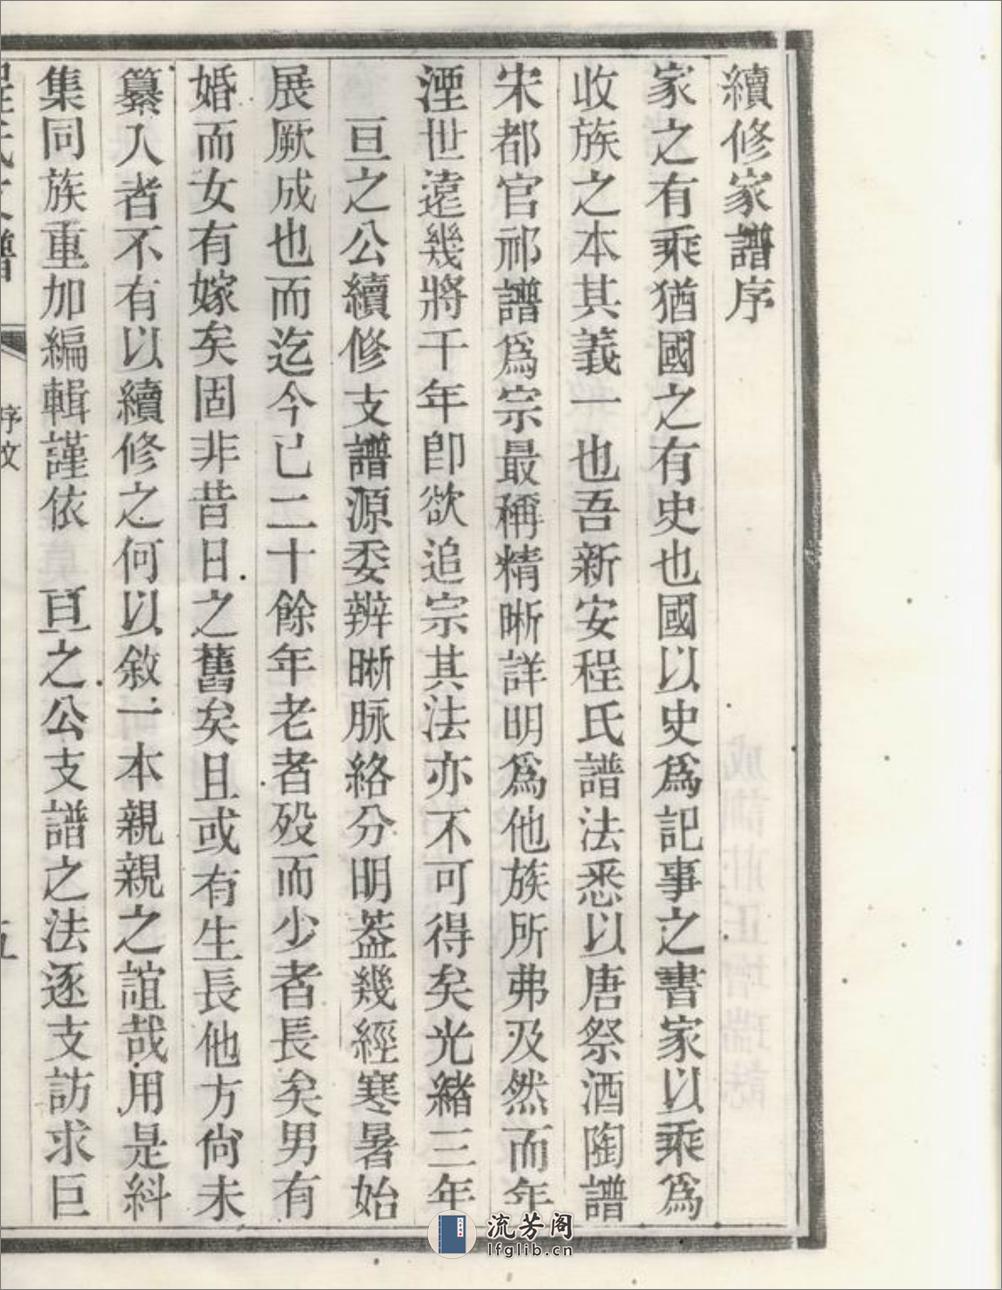 續修家譜序
家之有乘猶國之有史也國以史爲記事之書家以乘爲
收族之本其義一也吾新安程氏譜法悉以唐祭酒陶譜
宋都官祁譜爲宗最稱精晰詳明爲他族所弗及然而年
湮世遠幾將千年卽欲追宗其法亦不可得矣光緒三年
亘之公續修支譜源委辨晰脉絡分明葢幾經寒暑始
展厥成也而迄今已二十餘年老者殁而少者長矣男有
婚而女有嫁矣固非昔日之舊矣且或有生長他方尙未
纂入者不有以續修之何以敘一本親親之誼哉用是糾
集同族重加編輯謹依 亘之公支譜之法逐支訪求巨
序文
五
流芳阁
lfglib.cn